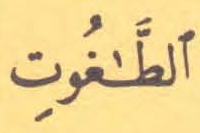 ٱلطَّـٰغُوتِ